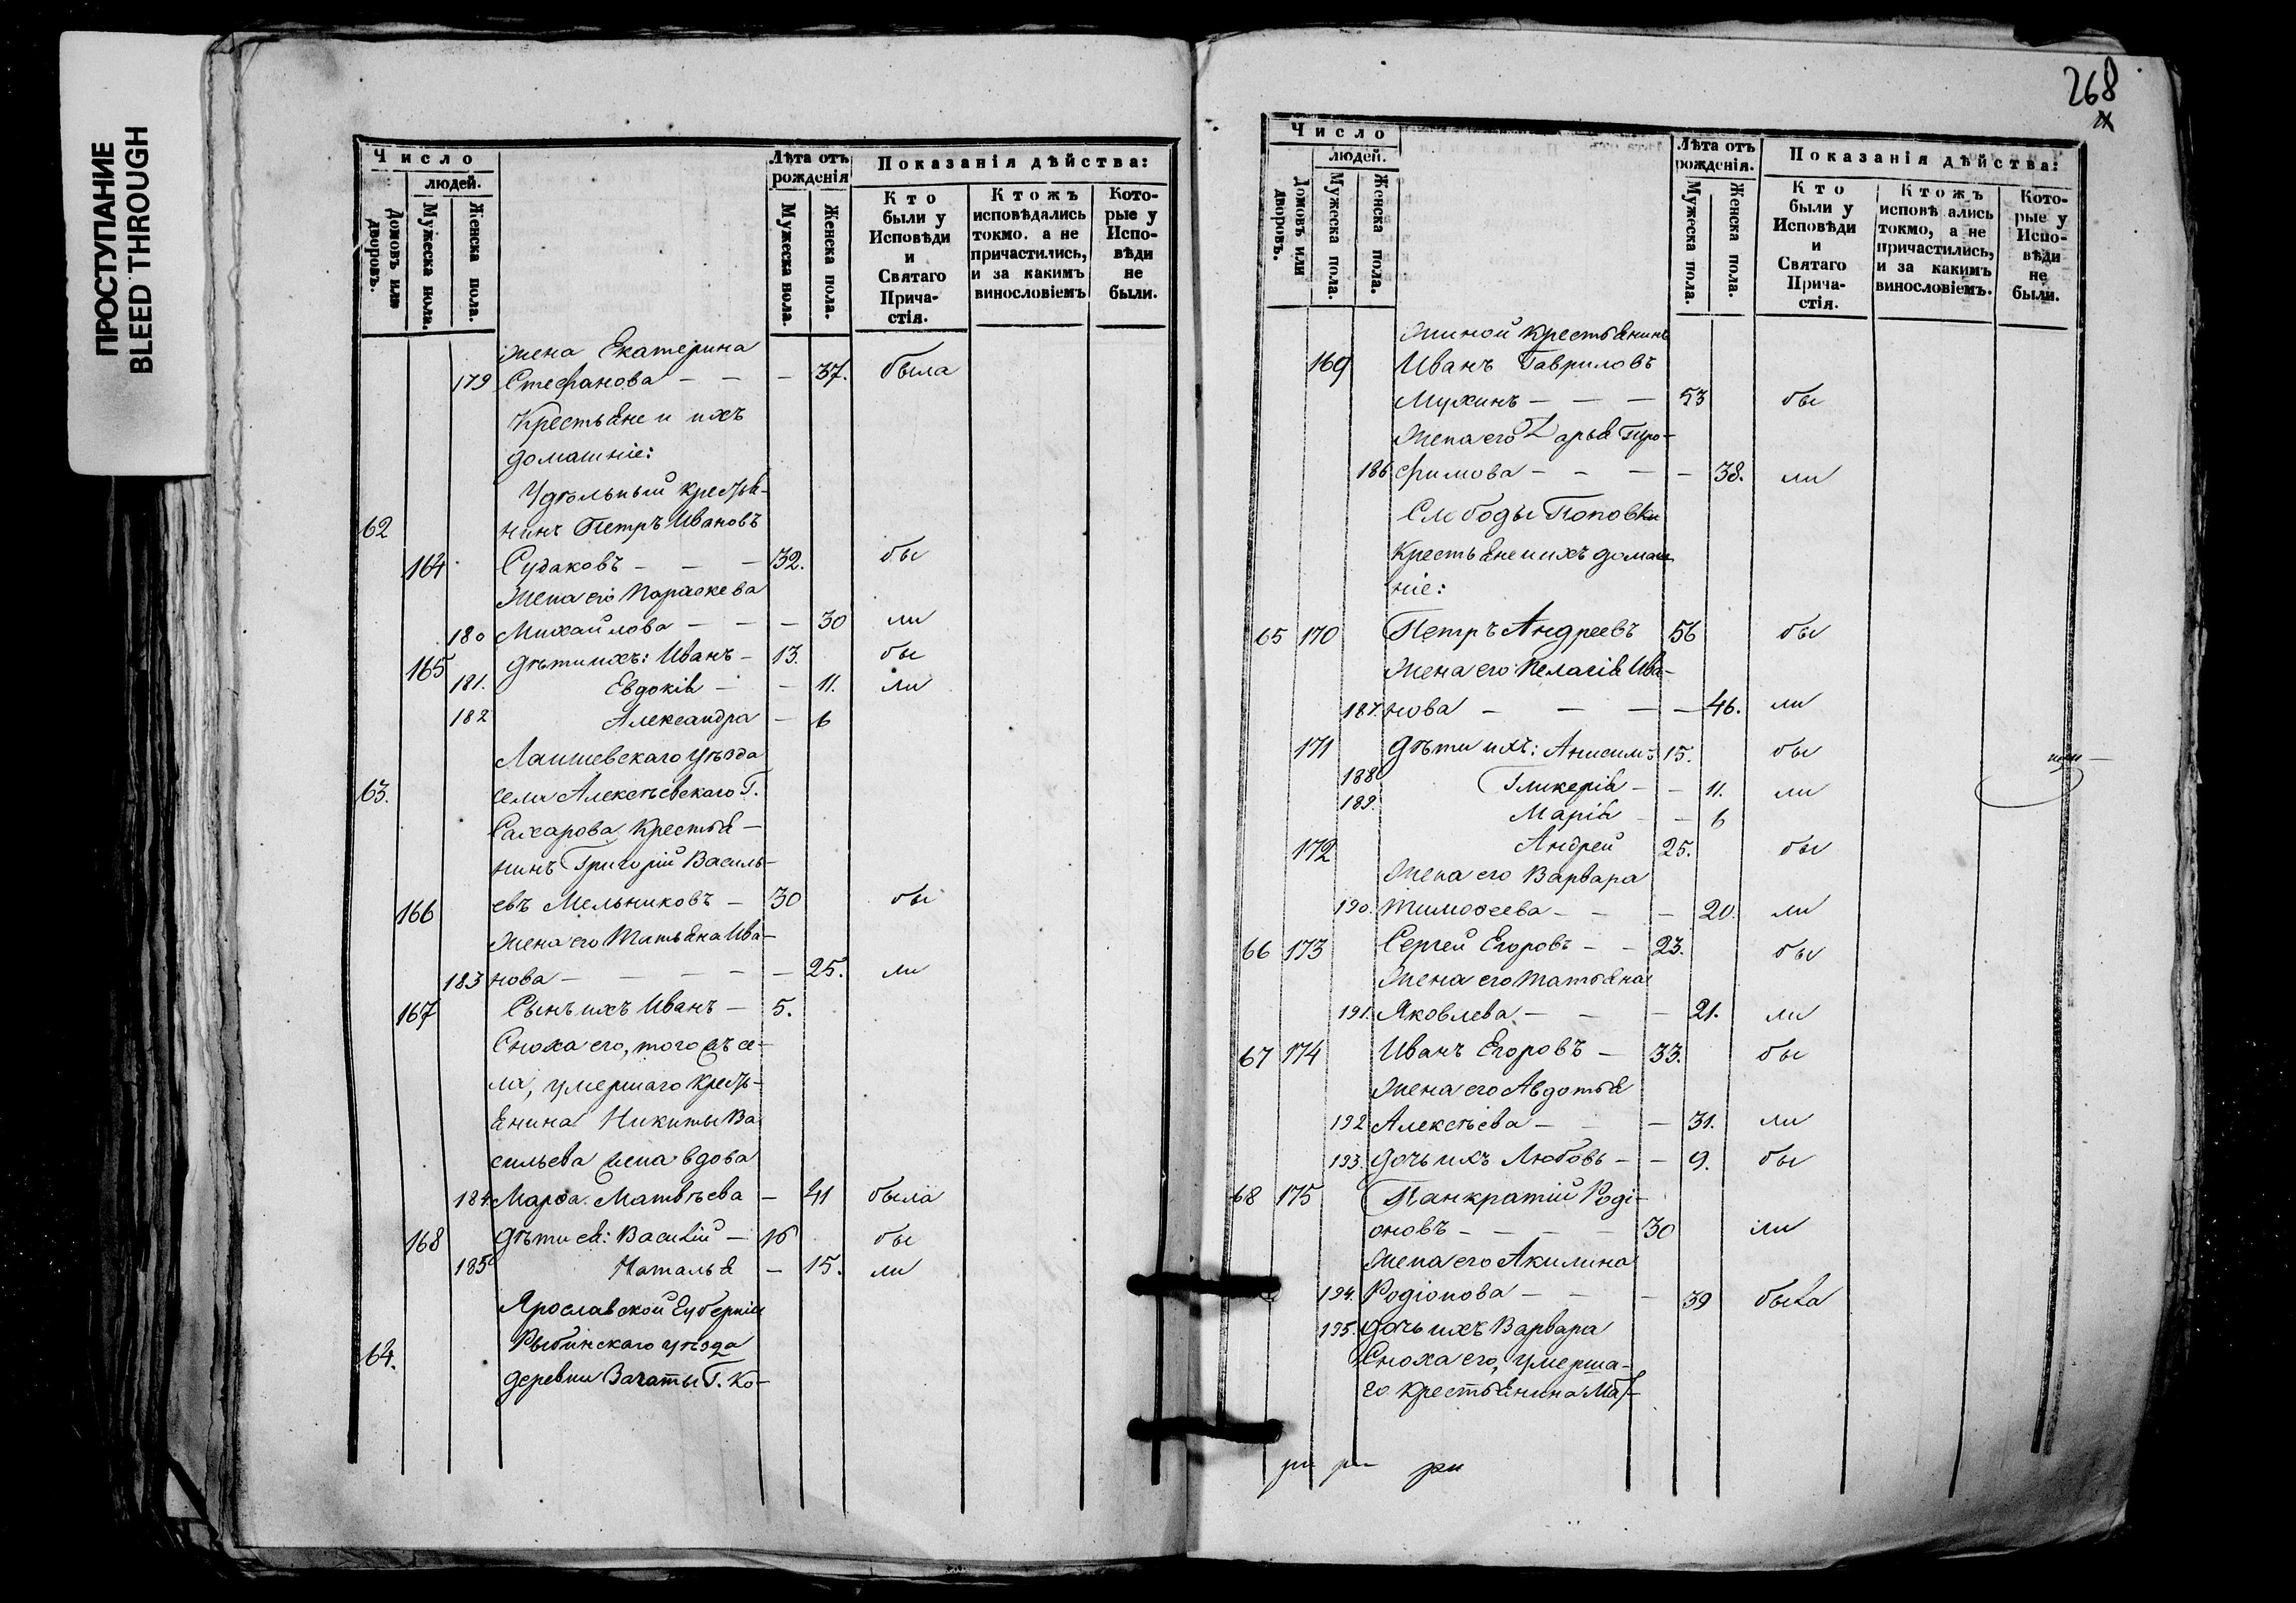 ПРОСТУПАНИЕ
BLEED THROUGH
Число
людей.
Домовъ или дворовъ.
Мужеска пола.
Женска пола.
Лѣта отъ рожденія
Мужеска пола.
Женска пола.
Показанія дѣйства:
Кто были у Исповѣди и Святаго Прича-стія.
Ктожъ исповѣдались токмо, а не причастились, и за какимъ винословіемъ
Кото-рые у Испо-вѣди не были.
жена Екатерина
179 Стефанова — — — 37. была
Крестьяне и ихъ
домашніе:
Удѣльный крестья-
62 нинъ Петръ Ивановъ
164 Судаковъ — — — 32. бы
Жена его Параскева
180 Михайлова — — — 30 ли
165 Дѣти ихъ: Иванъ — 13. бы
181. Евдокія — — 11. ли
182 Александра — 6
Лаишевскаго уѣзда
63. села Алексѣевскаго Г.
Сахарова крестья—
нинъ Григорій Василь—
166 евъ Мельниковъ — 30 бы
Жена его Татьяна Ива—
183 нова — — — — — 25. ли
167 Сынъ ихъ Иванъ — 5.
Сноха его, того жъ се—
ла, умершаго кресть—
янина Никиты Ва
сильева жена вдова
184 Марѳа Матвѣева — 41 была
168 Дѣти ея: Василій — 16 бы
185 Наталья — 15. ли
Ярославской Губерніи
Рыбинскаго уѣзда
64. деревни Г. Ко—
268
Число
людей.
Домовъ или дворовъ.
Мужеска пола.
Женска пола.
Лѣта отъ рожденія.
Мужеска пола.
Женска пола.
Показанія дѣйства:
Кто были у Исповѣди и Святаго Прича-стія.
Ктожъ исповѣ ались токмо, а не причастились, и за какимъ винословіемъ.
Кото-рые у Испо-вѣди не были.
миной крестьянинъ
169 Иванъ Гавриловъ
Мухинъ — — — 53 бы
Жена его Дарья Тро—
186 фимова — — — — 38. ли
Слободы Поповки
Крестьяне и ихъ домаш
ніе:
65 170 Петръ Андреевъ 56 бы
Жена его Пелагія Ива—
187. нова — — — — 46. ли
171 Дѣти ихъ: Анисимъ 15. бы
188 Гликерія — — 11. ли
189. Марія — — 6
172 Андрей 25. бы
Жена его Варвара
190. Тимоѳеева — — — 20. ли
66 173 Сергей Егоровъ — — 23. бы
Жена его Татьяна
191. Яковлева — — — 21. ли
67 174 Иванъ Егоровъ — 33. бы
Жена его Авдотья
192 Алексѣева — — — 31. ли
193. Дочь ихъ Любовь — — 9. бы
68 175 Панкратій Роді—
оновъ — — — — 30 ли
Жена его Акилина
194. Родіонова — — — 39 была
195. Дочь ихъ Варвара
Сноха его, умерша—
го крестьянина Мат—